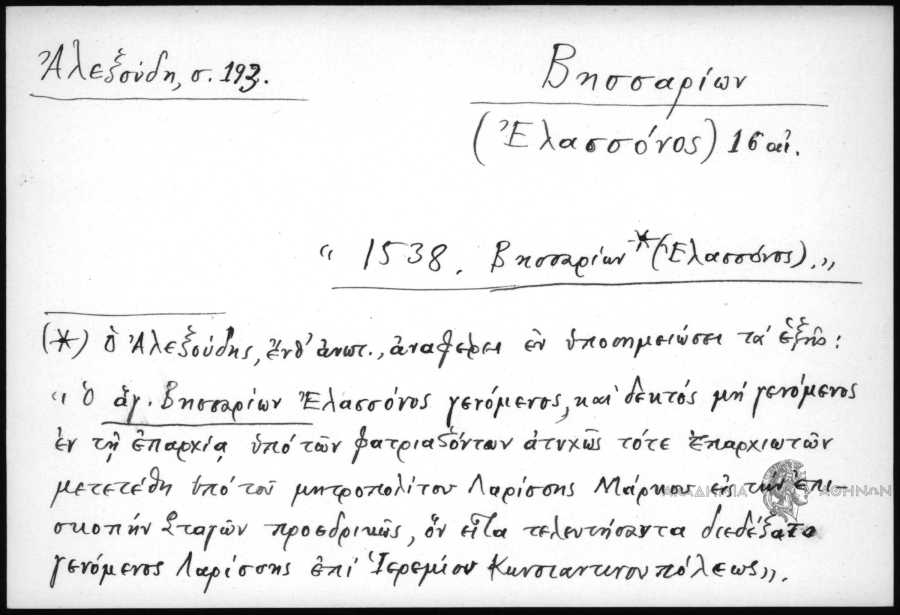 Ἀλεξούδη, σ. 193.
Βησσαρίων
(Ἐλασσόνος) 16 αἰ.
“ 1538. Βησσαρίων * (Ἐλασσόνος).„
(*) ὁ Ἀλεξούδης, ἔνθ' ἀνωτ., ἀναφέρει ἐν ὑποσημειώσει τὰ ἑξῆς:
“ Ὁ ἅγ. Βησσαρίων Ἐλασσόνος γενόμενος, καὶ δεκτός μή γενόμενος
ἐν τῇ ἐπαρχίᾳ ὑπό τῶν φατριαζόντων ἀτυχῶς τότε Ἐπαρχιωτῶν
μετετέθη ὑπό τοῦ μητροπολίτου Λαρίσσης Μάρκου εἰς τήν ἐπι-
σκοπήν Σταγῶν προεδρικῶς, ὅν εἶτα τελευτήσαντα διεδέξατο
γενόμενος Λαρίσσης ἐπί Ἱερεμίου Κωνσταντινουπόλεως„.
ΑΚΑΔΗΜΙΑ ΑΘΗΝΩΝ